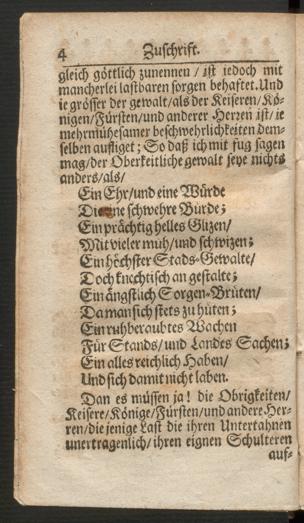 4 Zuschrift.
gleich göttlich zunennen / ist iedoch mit
mancherlei lastbaren sorgen behaftet. Und
ie grösser der gewalt / als der Keiseren / Kö-
nigen / Fürsten / und anderer Herzen ist / ie
mehr mühesamer beschwehrlichkeiten dem-
selben aufliget; So daß ich mit fug sagen
mag / der Oberkeitliche gewalt seye nichts
anders / als /
Ein Ehr / und eine Würde
Die ohne schwehre Bürde;
Ein prächtig helles Glizen /
Mit vieler müh / und schwizen;
Ein höchster Stads-Gewalte /
Doch knechtisch an gestalte;
Ein ängstlich Sorgen-Brüten /
Da man sich stets zu hüten;
Ein ruhberaubtes Wachen
Für Stands / und Landes Sachen;
Ein alles reichlich Haben /
Und sich damit nicht laben.
Dan es müssen ja! die Obrigkeiten /
Keisere / Könige / Fürsten / und andere Her-
ren / die jenige Last die ihren Untertahnen
unertragenlich / ihren eignen Schulteren
auf-